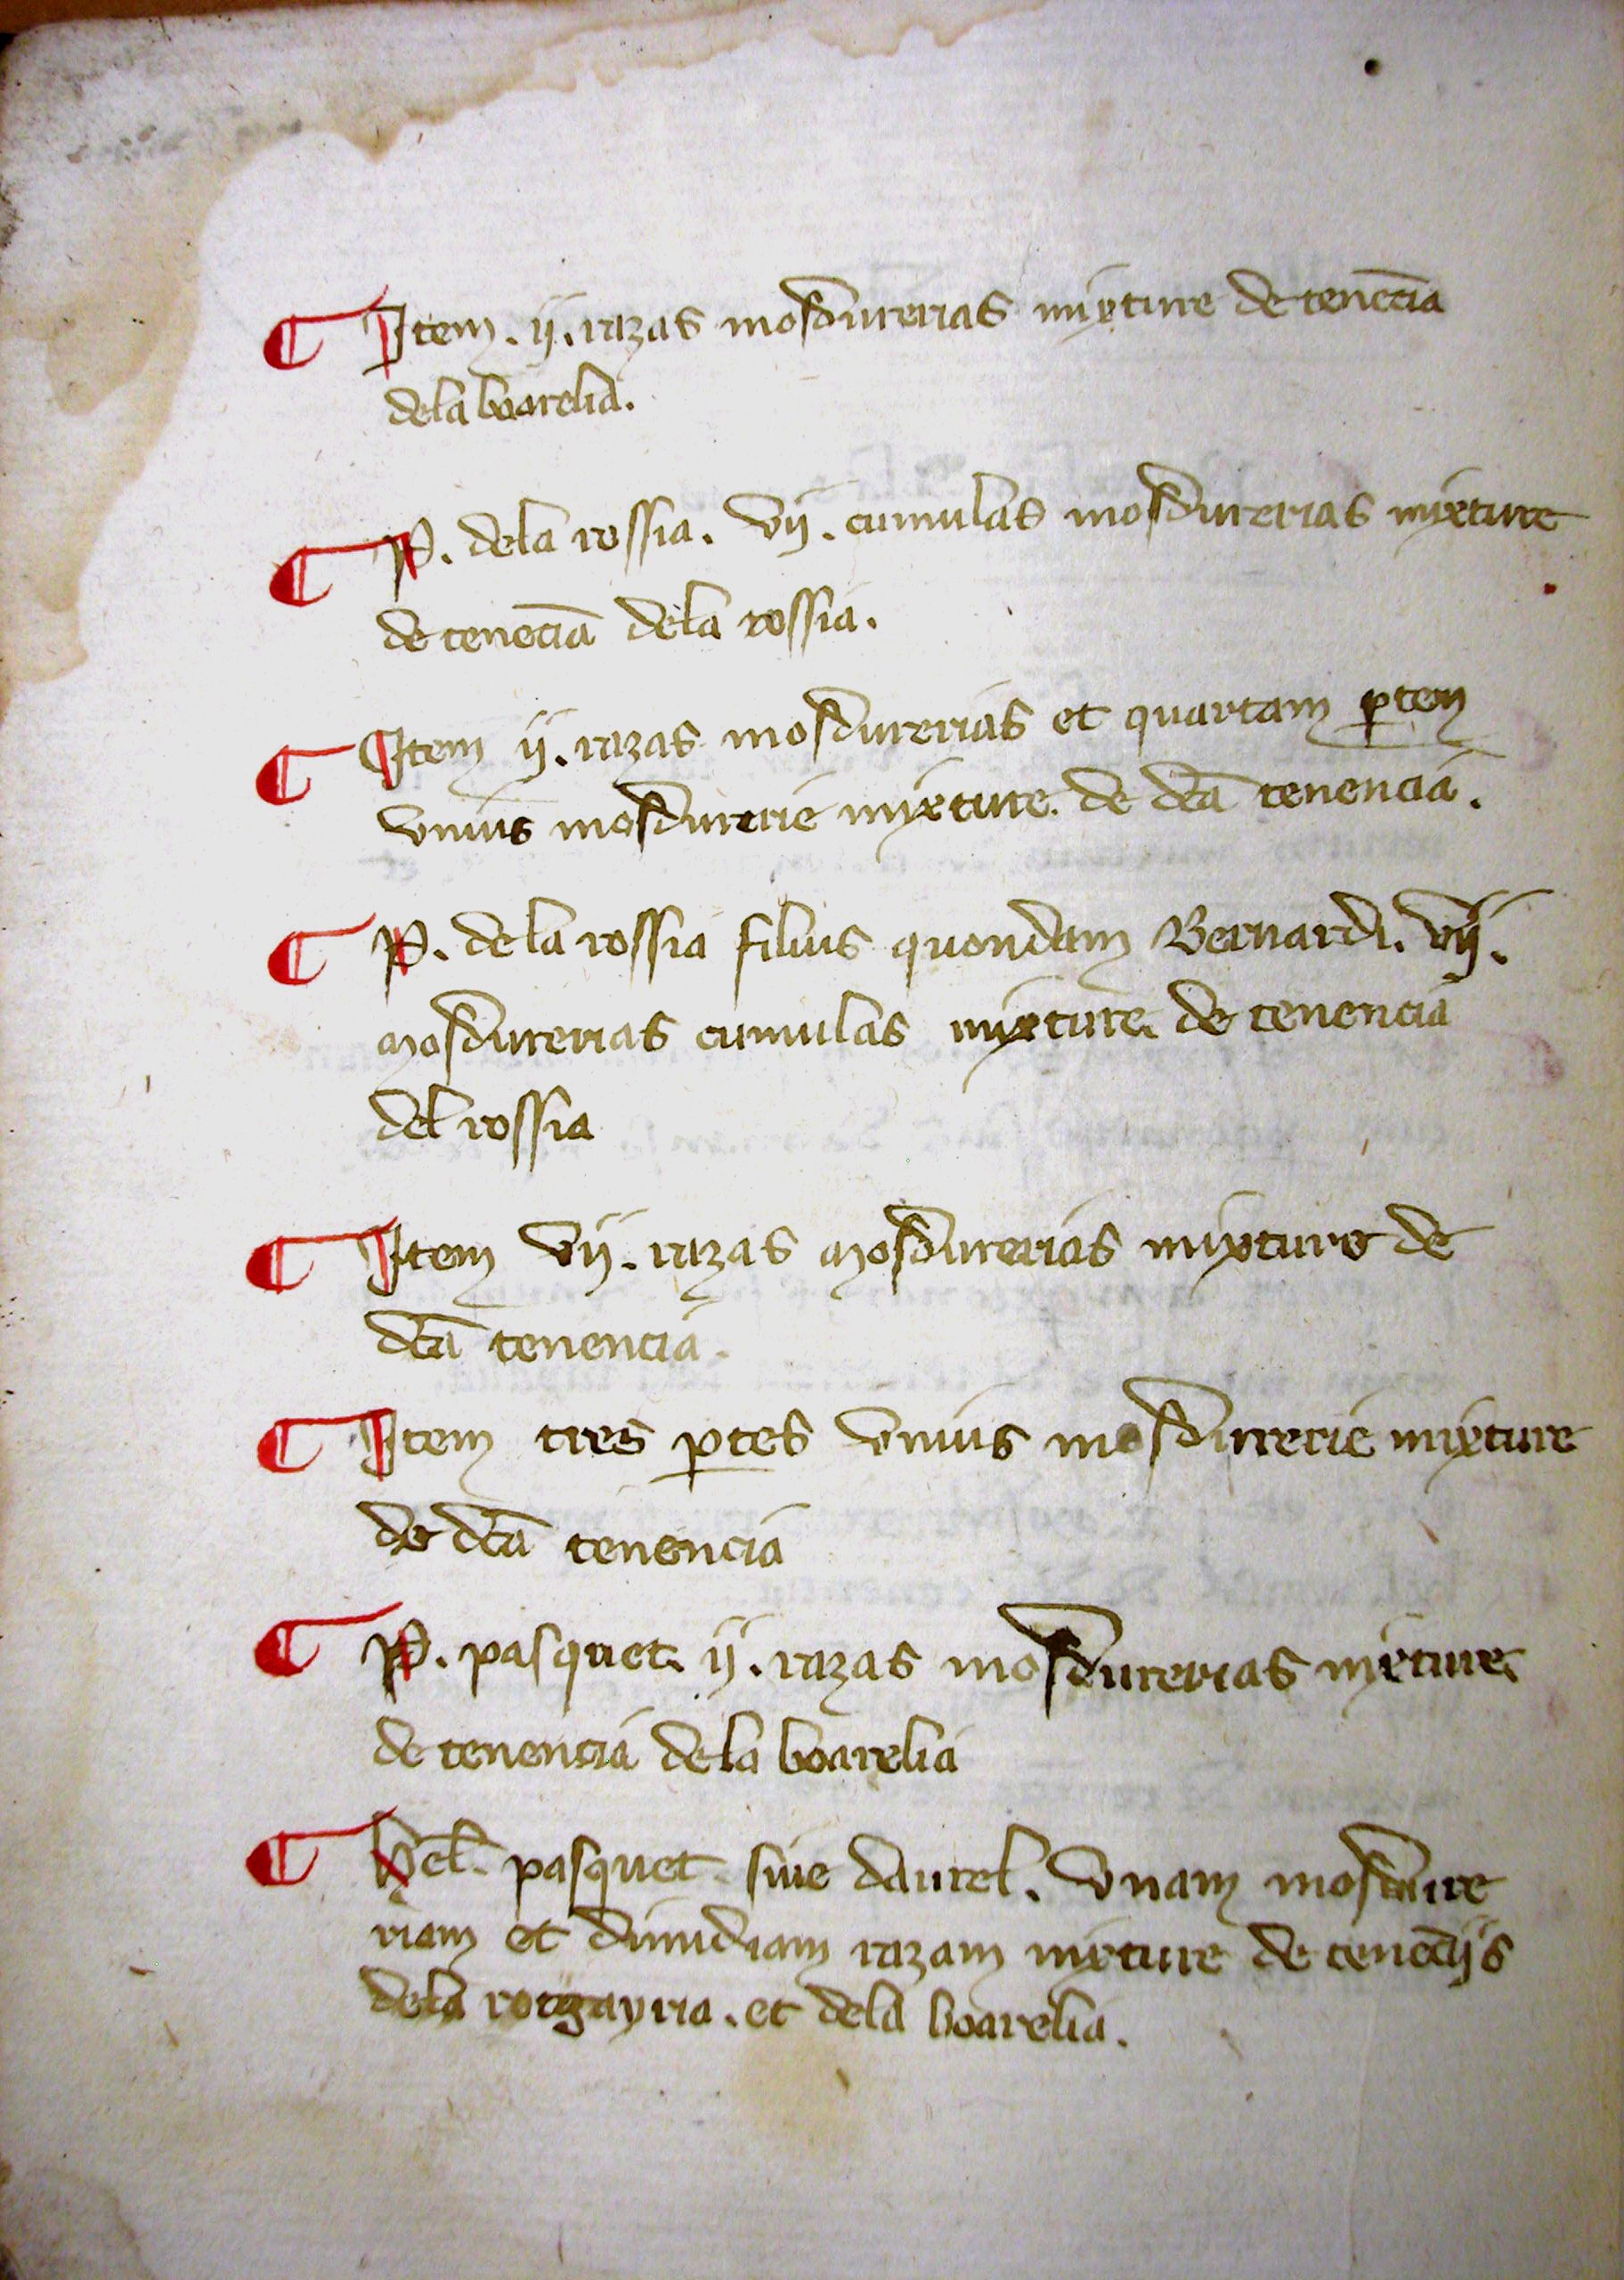 ¶ Item . ij . razas mosdurerias mixture de tenēcia
dela boarelia.
¶ P. dela rossia. vij. cumulas mosdurerias mixture
de tenēcia dela rossia.
¶ Item ij. razas mosdurerias et quartam ꝑtem
vnius mosdurerie mixture. de dc̄a tenencia.
¶ P. dela rossia filius quondam Bernardi. vij.
mosdurerias cumulas mixture. de tenencia
del rossia
¶ Item vij. razas mosdurerias mixture de
dc̄a tenencia.
¶ Item tres ꝑtes vnius mosdurerie mixture
de dc̄a tenencia
¶ P. pasquet. ij. razas mosdurerias mixture.
de tenencia dela boarelia
¶ Hel̄. pasquet siue daurel. vnam mosdure
riam et dimidiam razam mixture de tenēcijs
dela rotgayria. et dela boarelia.